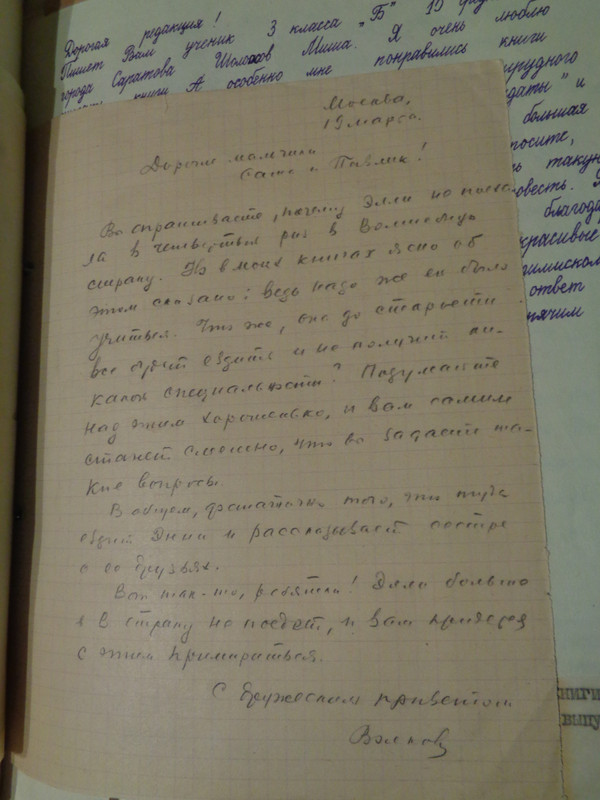 Дорогая редакция!
Пишет Вам ученик 3 класса "Б" 19
города Саратова Шолохов Миша. Я очень люблю
книги А особенно мне понравились книги
рудного
даты" и
большая
посите,
такую
овесть.
благода
красивые
ответ
Москва,
19 марта.
Дорогие мальчики
Саша и Павлик!
Вы спрашиваете, почему Элли не поеха
ла в четвертый раз в Волшебную
страну. Но в моих книгах ясно об
этом сказано: ведь надо же ей было
учиться. Что же, она до старости
все будет ездить и не получит ни-
какой специальности? Подумайте
над этим хорошенько, и вам самим
станет смешно, что вы задаёте та-
кие вопросы.
В общем, достаточно того, что туда
ездит Энни и рассказывает сестре
о её друзьях.
Вот так-то, ребятки! Элли больше
в страну не поедет, и вам придется
с этим примириться.
С дружеским приветом
Волков
книги
выпу